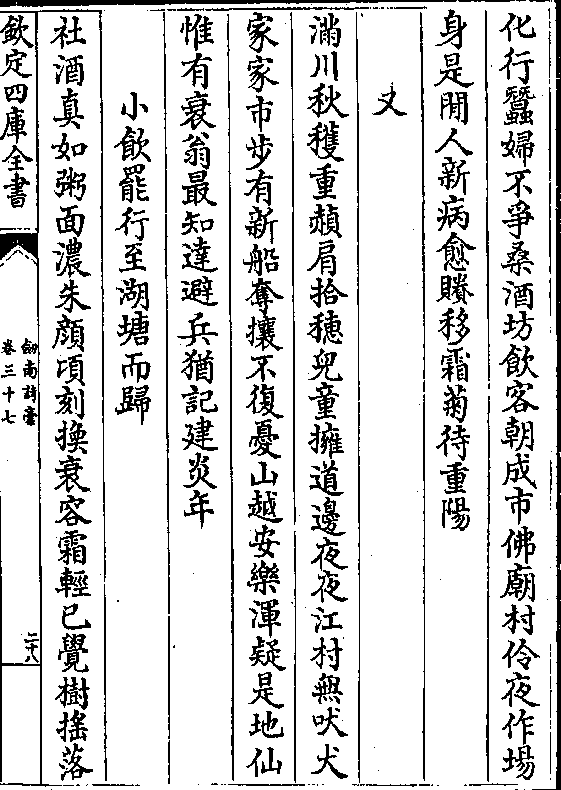 化行蠶婦不爭桑酒坊飲客朝成市佛廟村伶夜作場
身是閒人新病愈賸移霜菊待重陽
又
滿川秋穫重赬肩拾穗兒童擁道邊夜夜江村無吠犬
家家市步有新船奪攘不復憂山越安樂渾疑是地仙
惟有衰翁最知達避兵猶記建炎年
小飲罷行至湖塘而歸
社酒真如粥面濃朱顔頃刻換衰容霜輕已覺樹揺落
欽定四庫全書
劒南詩槀
卷三十七
二十八